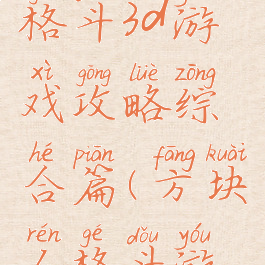 格斗3d游
xì gōng lüè zōng
戏攻略综
hé piān fāng kuài
合篇(方块
rén gé dǒu yóu
人格斗游